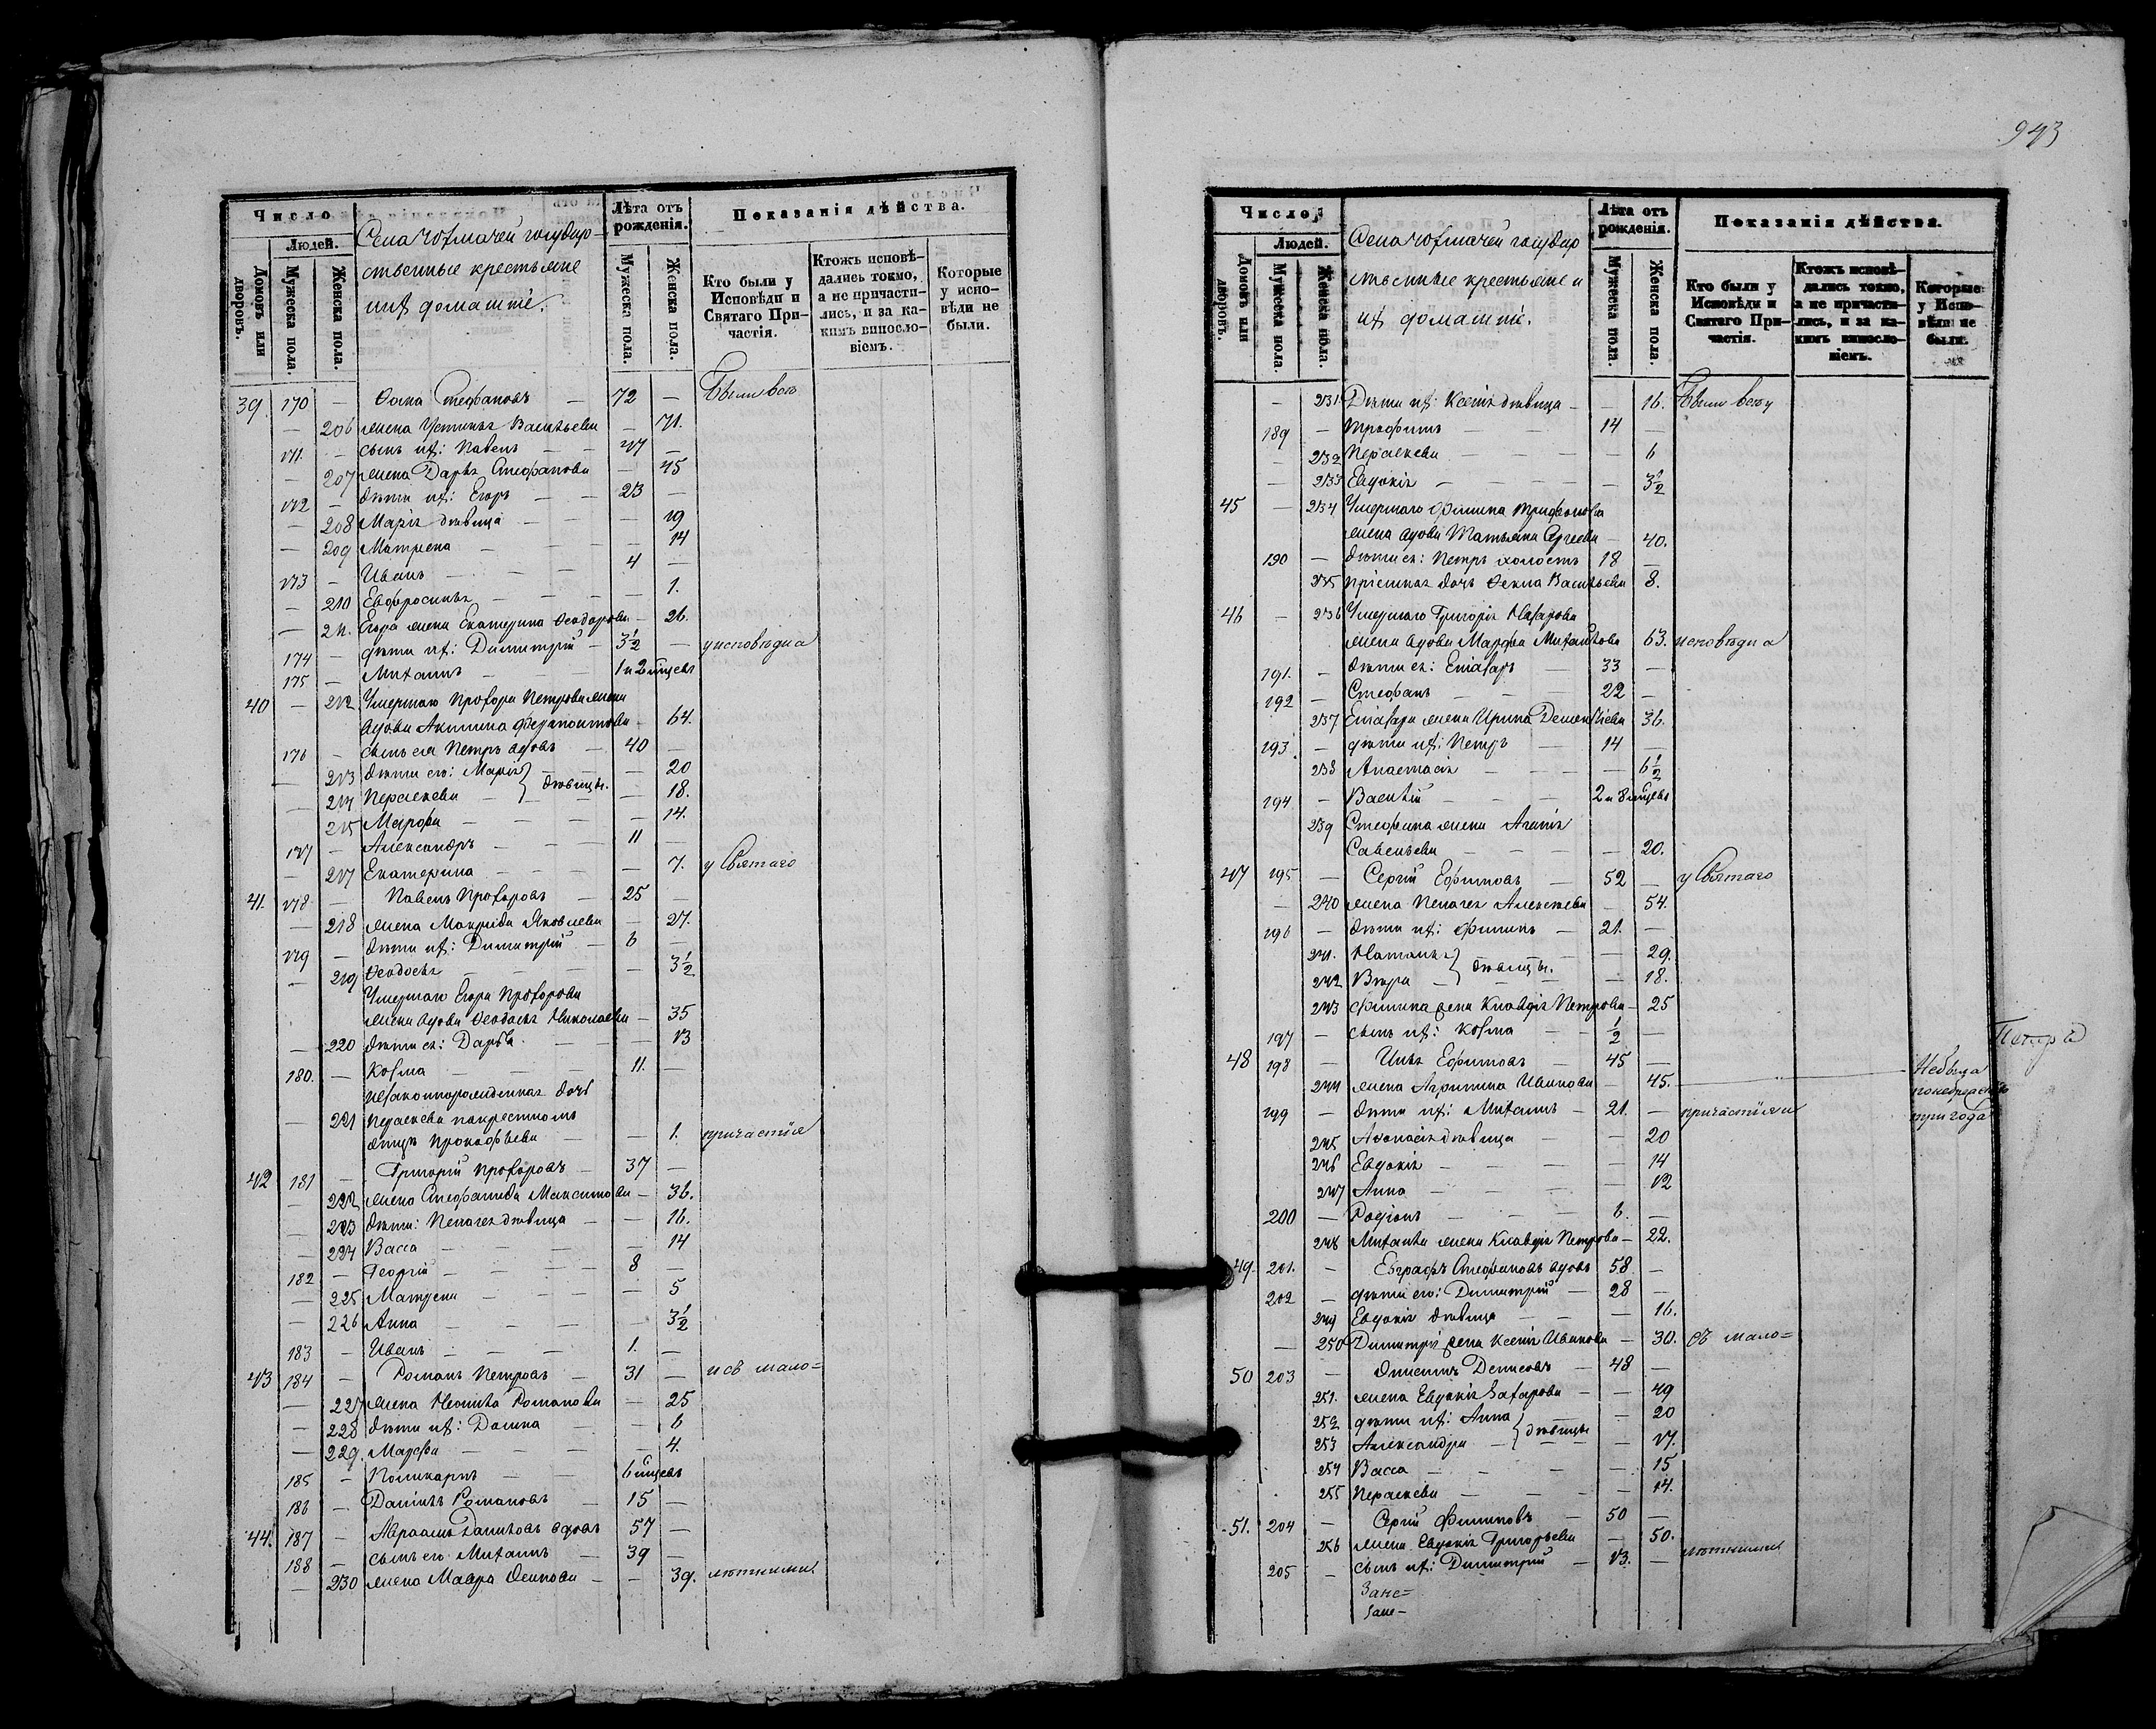 943
Число
Людей.
Домовъ или дворовъ.
Мужеска пола.
Женска пола.
Села государ-
ственные крестьяне
и ихъ домашніе.
Лѣта отъ рожденія.
Мужеска пола.
Женска пола.
Показанія дѣйства.
Кто были у Исповѣди и Святаго Причастія.
Ктожъ исповѣдались токмо, а не причастились, и за какимъ винословіемъ.
Которые у исповѣди не были.
39. 170 — Фома Стефановъ — 72 — Были всѣ
— 206 жена Устинья Васильева — 71.
171. — сынъ ихъ: Павелъ — 47 —
— 207 жена Дарья Стефанова — 45
172 — дѣти ихъ: Егоръ — 23 —
— 208 Марія дѣвица — 19
— 209 Матрена — 14
173 — Иванъ — 4 —
— 210 Евфросинья — 1.
— 211. Егора жена Екатерина Феодорова — 26.
174 — дѣти ихъ: Димитрій — 3½ — у исповѣди и
175 — Михаилъ — 1 и 2 мѣсяцевъ
40 — 212 Умершаго Прохора Петрова жена
вдова Акилина — 64.
176 — сынъ ея Петръ вдовъ — 40 —
— 213 дѣти его: Марія } дѣвицы. — 20
— 214 Параскева — 18.
— 215 Марфа — 14.
177 — Александръ — 11 —
— 217 Екатерина — 7. у Святаго
41. 178 — Павелъ Прохоровъ — 25 —
— 218 жена Макрида Яковлева — 27.
179 — дѣти ихъ: Димитрій — 6 —
— 219 Феодосья — 3½
Умершаго Егора Прохорова
жена вдова Феодосья Николаева — 35
— 220 дѣти ея: Дарья — 13
180. — Козма — 11. —
незаконнорожденная дочь
— 221 Параскева по крестномъ
отцѣ Прокофьева — 1. причастія
42 181 — Григорій Прохоровъ — 37 —
— 222 жена Стефанида Максимова — 36.
— 223 дѣти: Пелагея дѣвица — 16.
— 224 Васса — 14
182 — Георгій — 8 —
— 225 Матрена — 5
— 226 Анна — 3½
183 — Иванъ — 1. —
43 184 — Романъ Петровъ — 31 — и съ мало=
— 227 жена Неонила Романова — 25
— 228 дѣти ихъ: Домна — 6
— 229. Марфа — 4.
185 — Поликарпъ — 6 мѣсяцевъ
186 — Даніилъ Романовъ — 15 —
44. 187 — Авраамъ Даниловъ вдовъ 57 —
188 — сынъ его Михаилъ — 39 —
— 230 жена Мавра — 39. лѣтними
Число
Людей.
Домовъ или дворовъ.
Мужеска пола.
Женска пола.
Села государ
ственные крестьяне и
ихъ домашніе.
Лѣта отъ рожденія.
Мужеска пола.
Женска пола.
Показанія дѣйства.
Кто были у Исповѣди и Святаго Причастія.
Ктожъ исповѣдались токмо, а не причастились, и за какимъ винословіемъ.
Которые у Исповѣди не были.
— 231. Дѣти ихъ: Ксенія дѣвица — 16. Были всѣ у
189 — Трофимъ — 14 —
— 232 Параскева — 6
— 233 Евдокія — 3½
45 — 234 Умершаго Филипа Трифонова
жена вдова Татьяна Сергеева — 40.
190 — дѣти ея: Петръ холостъ 18 —
235 пріемная дочь Фекла Васильева 8.
46 — 236 Умершаго Григорія Назарова
жена вдова Марфа Михайлова 63. исповѣди и
191. — дѣти ея: Еліазаръ — 33 —
192 — Стефанъ — 22 —
237 Еліазара жена Ирина Дементіева 36.
193. — дѣти ихъ: Петръ — 14 —
238 Анастасія — 6½
194 — Василій — 2 и 8 мѣсяцевъ
239 Стефана жена Агапія
Савельева — 20.
47 195 — Сергій Ефимовъ — 52 — у Святаго
— 240 жена Пелагея Алексѣева — 54.
196 — дѣти ихъ: Филипъ — 21. —
241. Наталья } дѣвицы. — 29.
242 Вѣра — 18.
243 Филипа жена Клавдія Петрова — 25
197 — сынъ ихъ: Козма — ½ —
48 198 — Илья Ефимовъ — 45 —
244 жена Агрипина Иванова — 45. — Не была
199 — дѣти ихъ: Михаилъ — 21. — причастія и
три года
245 Афанасія дѣвица — 20
246 Евдокія — 14
247 Анна — 12
200 — Родіонъ — 6. —
248 Михаила жена Клавдія Петрова — 22.
49. 201. — Евграфъ Стефановъ вдовъ 58 —
202 — дѣти его: Димитрій — 28 —
249 Евдокія дѣвица — 16.
— 250 Димитрія жена Ксенія Иванова — 30. съ мало=
50 203 — Денисовъ — 48 —
251. жена Евдокія Захарова — 49
252 дѣти ихъ: Анна } дѣвицы — 20
253 Александра — 17.
254 Васса — 15
255 Параскева — 14.
51. 204 — Сергій Филиповъ — 50 —
256 жена Евдокія Григорьева — 50.
205 — сынъ ихъ: Димитрій — 13. — лѣтними